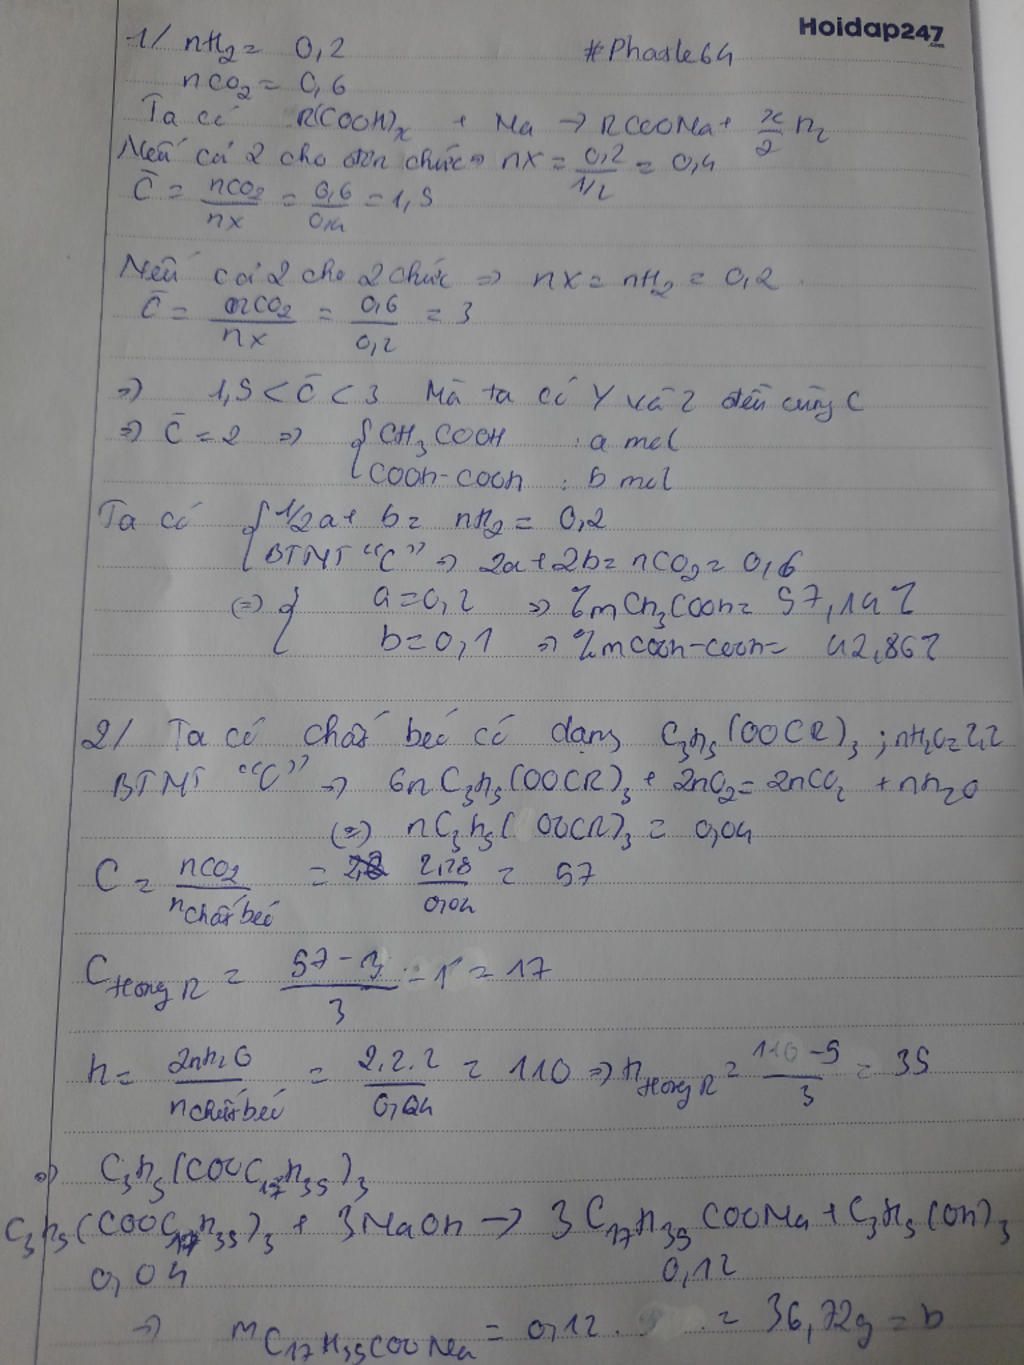 Hoidap247
.com
1/ nH2 = 0,2 #Phasle64
nCO2 = 0,6
Ta có R(COOH)x + Na → RCOONa + x/2 H2
Nếu cả 2 cho đơn chức ⇒ nX = 0,2 / 1/2 = 0,4
C̄ = nCO2 / nX = 0,6 / 0,4 = 1,5
Nếu cả 2 cho 2 chức ⇒ nX = nH2 = 0,2
C̄ = nCO2 / nX = 0,6 / 0,2 = 3
⇒ 1,5 < C̄ < 3 Mà ta có Y và Z đều cùng C
⇒ C̄ = 2 ⇒ { CH3COOH : a mol
COOH-COOH : b mol
Ta có { 1/2a + b = nH2 = 0,2
BTNT "C" ⇒ 2a + 2b = nCO2 = 0,6
(=) { a = 0,2 ⇒ %mCH3COOH = 57,14%
b = 0,1 ⇒ %mCOOH-COOH = 42,86%
2/ Ta có chất béo có dạng C3H5(OOCR)3 ; nH2O = 2,2
BTNT "O" ⇒ 6nC3H5(OOCR)3 + 2nO2 = 2nCO2 + nH2O
(=) nC3H5(OOCR)3 = 0,04
C = nCO2 / nchất béo = 2,28 / 0,04 = 57
CTrong R = 57 - 3 / 3 - 1 = 17
H = 2nH2O / nchất béo = 2.2.2 / 0,04 = 110 ⇒ HTrong R = 110 - 5 / 3 = 35
⇒ C3H5(COOC17H35)3
C3H5(COOC17H35)3 + 3NaOH → 3C17H35COONa + C3H5(OH)3
0,04 0,12
⇒ mC17H35COONa = 0,12 . = 36,72g = b